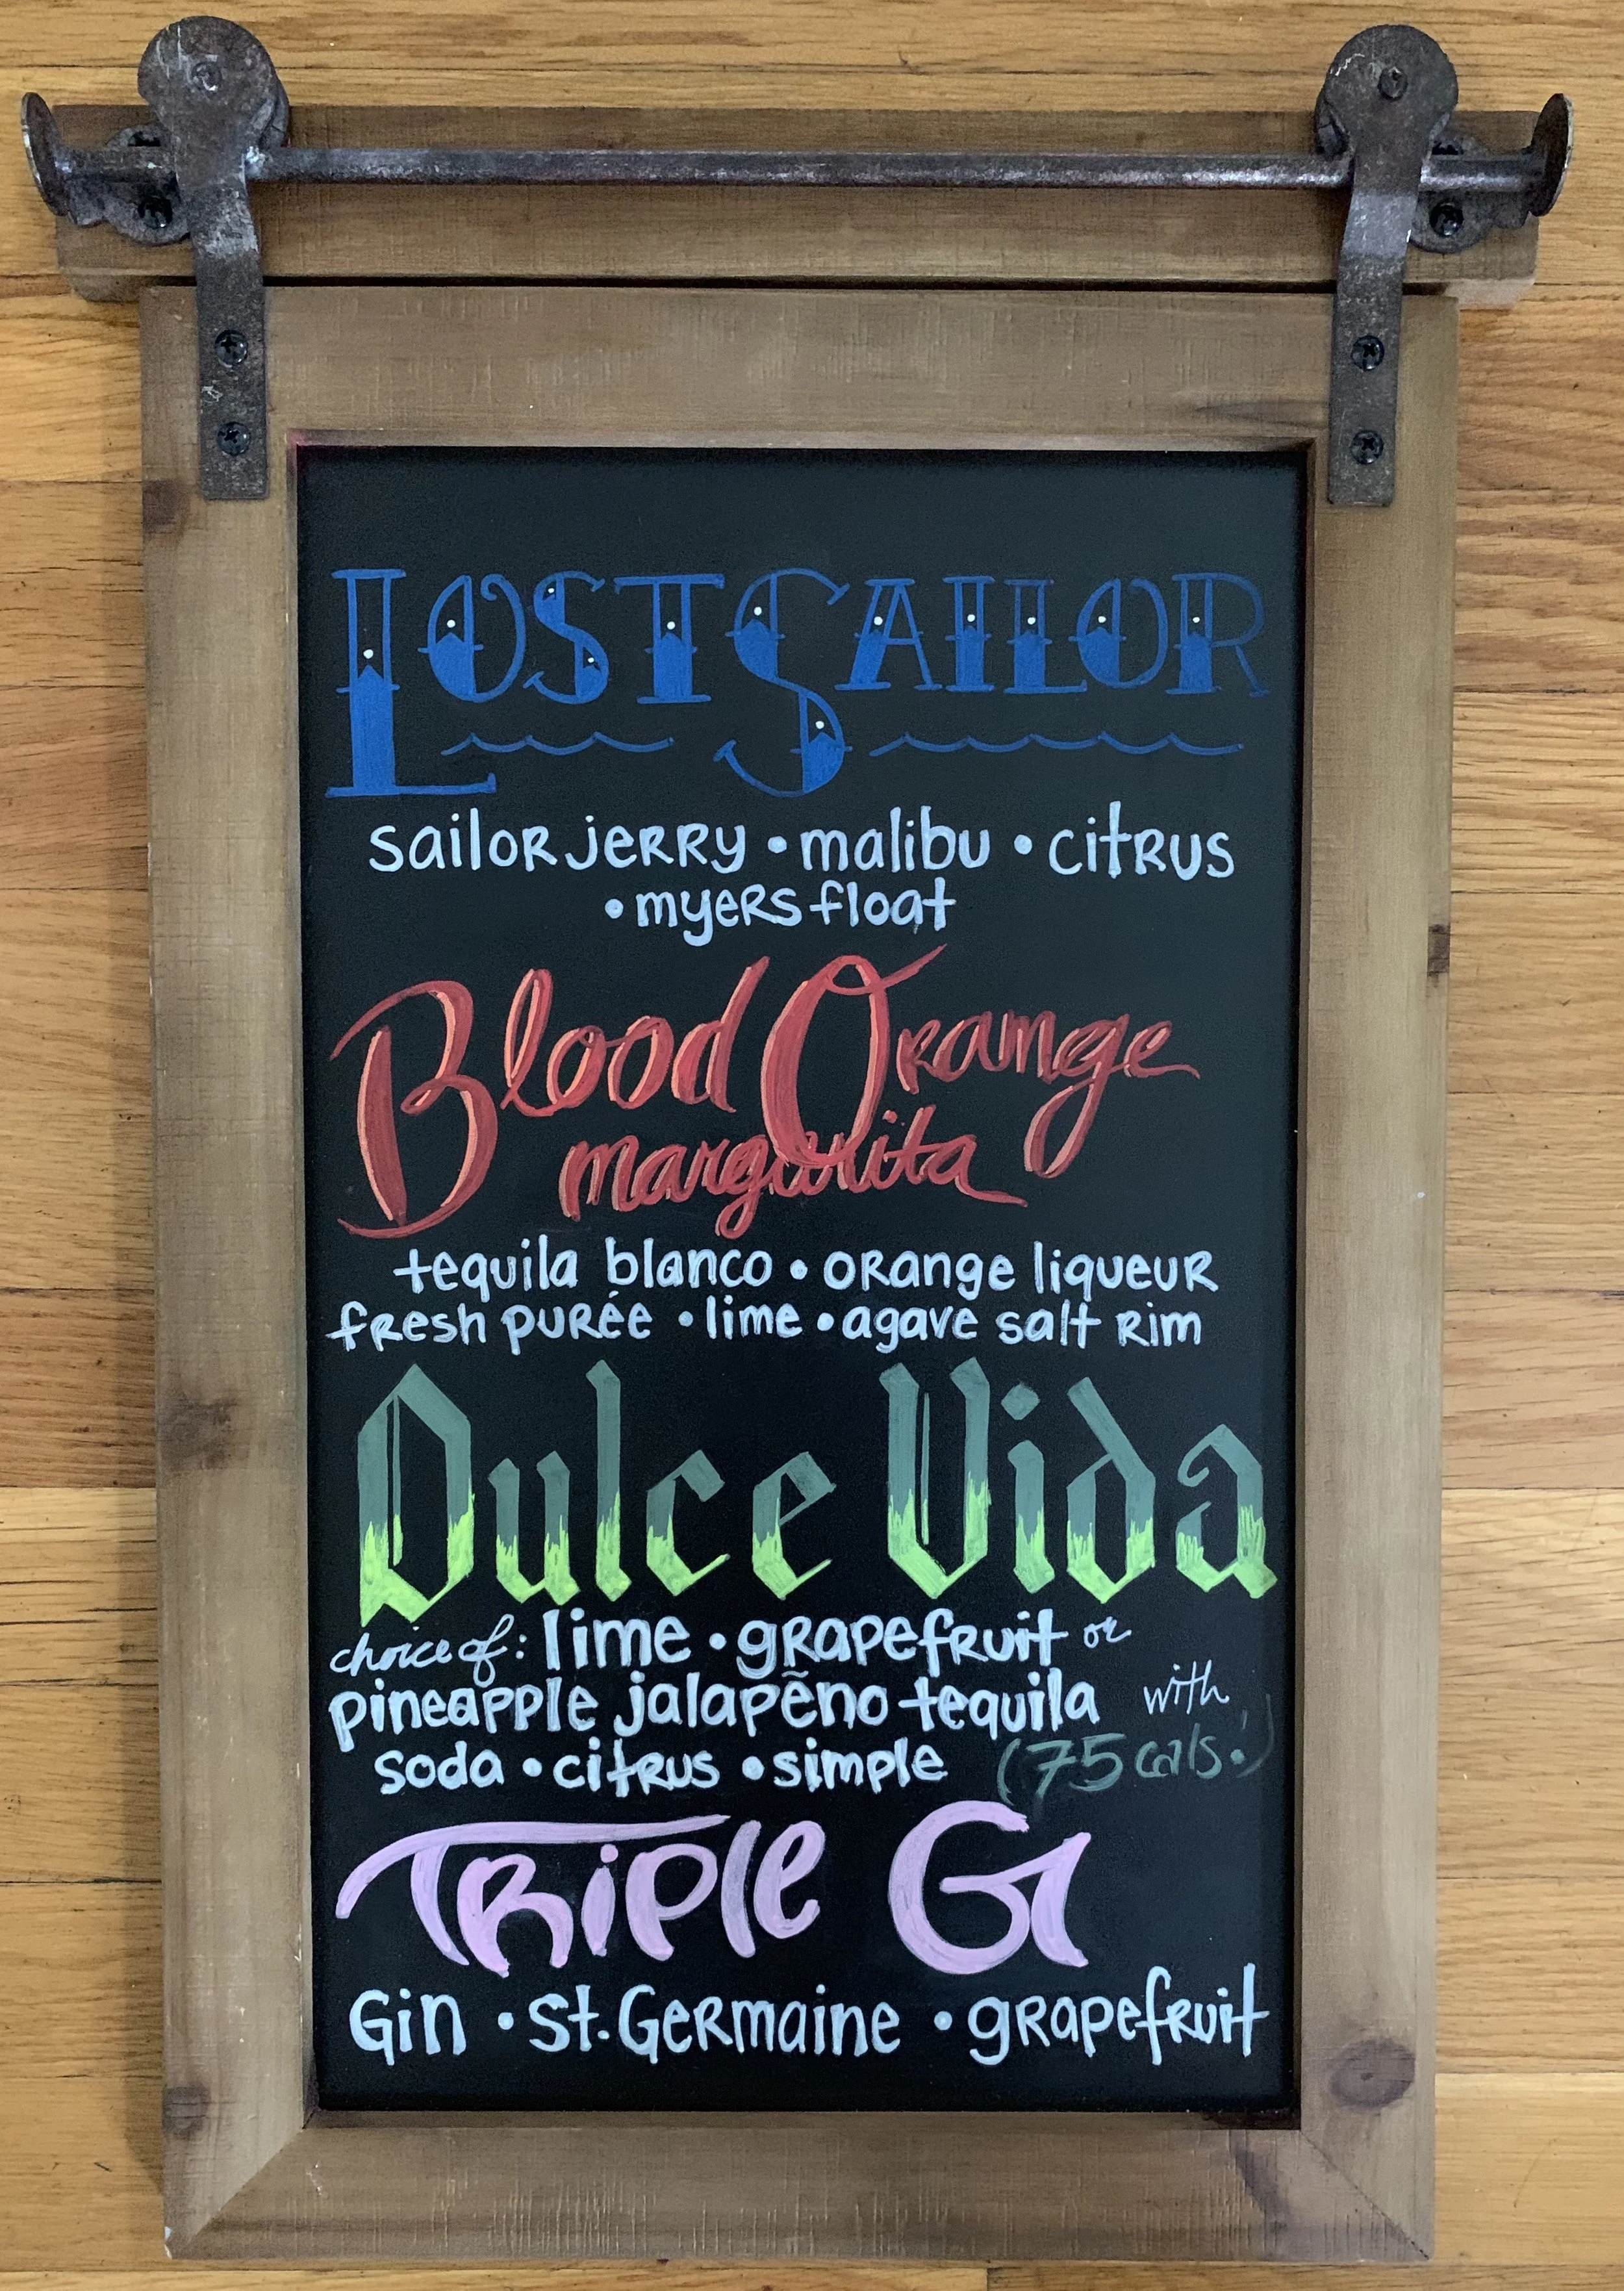 Lost Sailor
sailor jerry • malibu • citrus
• myers float
Blood Orange
margarita
tequila blanco • orange liqueur
fresh purée • lime • agave salt rim
Dulce Vida
choice of: lime • grapefruit or
pineapple jalapẽno tequila with
soda • citrus • simple (75 cals!)
Triple G
Gin • St. Germaine • grapefruit